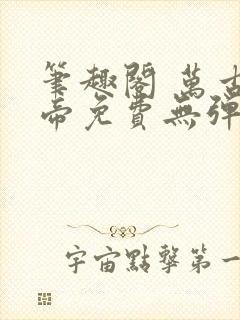 筆趣閣 萬古
帝免費無彈
宇宙點擊第一